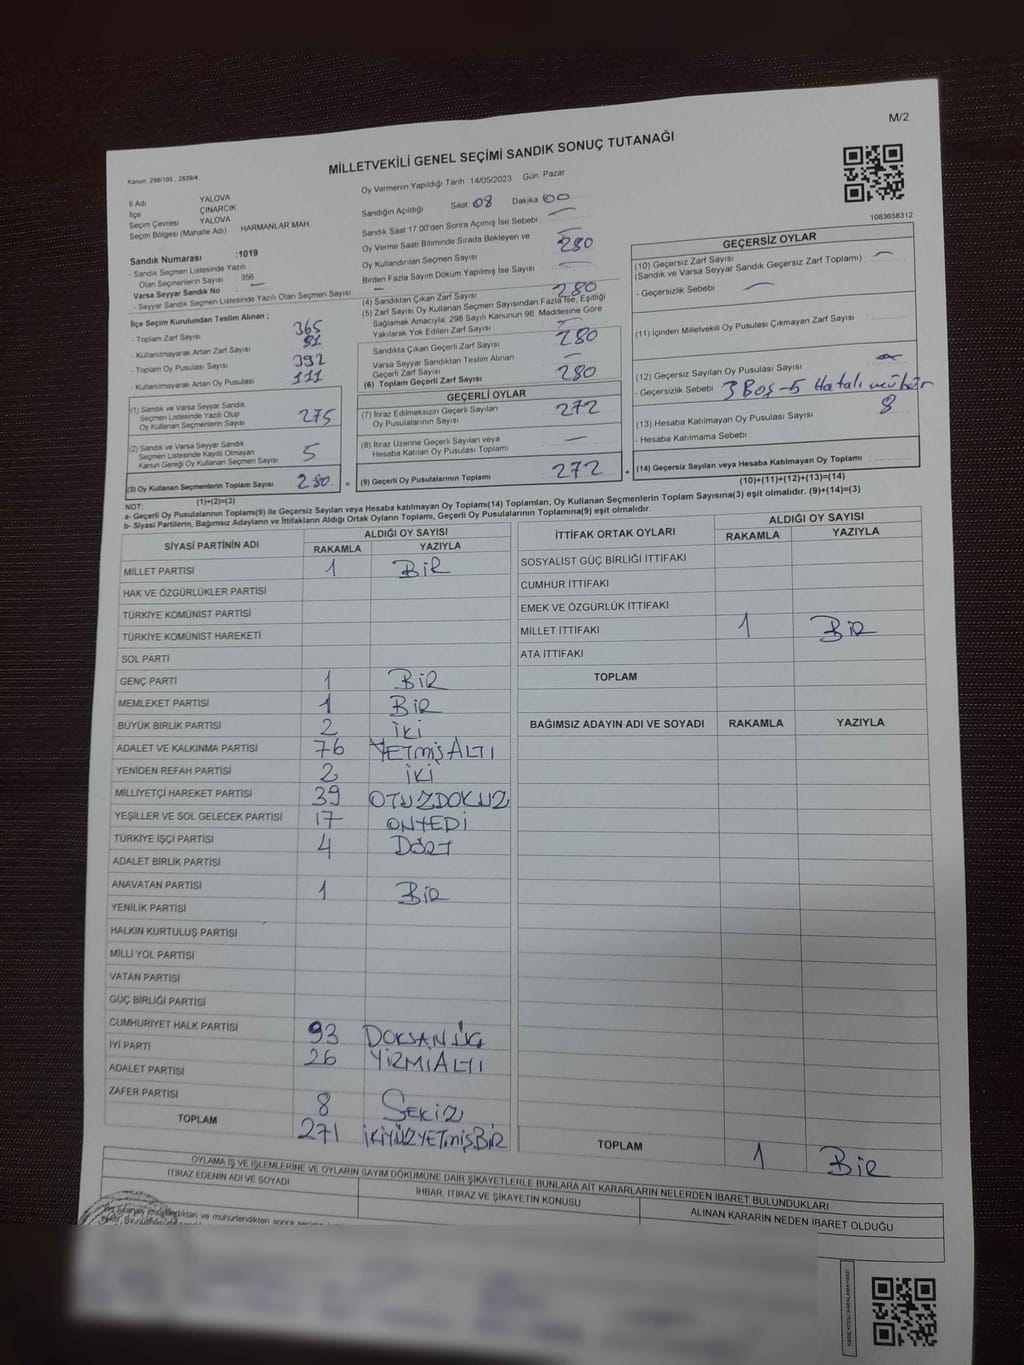 M/2
MİLLETVEKİLİ GENEL SEÇİMİ SANDIK SONUÇ TUTANAĞI
Kanun: 298/105 , 2839/4
Oy Vermenin Yapıldığı Tarih 14/05/2023 Gün. Pazar
İl Adı YALOVA
İlçe ÇINARCIK
Seçim Çevresi YALOVA
Seçim Bölgesi (Mahalle Adı) HARMANLAR MAH.
Sandık Numarası :1019
- Sandık Seçmen Listesinde Yazılı
Olan Seçmenlerin Sayısı 356
Varsa Seyyar Sandık No —
- Seyyar Sandık Seçmen Listesinde Yazılı Olan Seçmen Sayısı —
İlçe Seçim Kurulundan Teslim Alınan ;
- Toplam Zarf Sayısı 365
- Kullanılmayarak Artan Zarf Sayısı 81
- Toplam Oy Pusulası Sayısı 392
- Kullanılmayarak Artan Oy Pusulası 111
(1) Sandık ve Varsa Seyyar Sandık
Seçmen Listesinde Yazılı Olup
Oy Kullanan Seçmenlerin Sayısı 275
(2) Sandık ve Varsa Seyyar Sandık
Seçmen Listesinde Kaydı Olmayan
Kanun Gereği Oy Kullanan Seçmen Sayısı 5
(3) Oy Kullanan Seçmenlerin Toplam Sayısı 280
(1)+(2)=(3)
Sandığın Açıldığı Saat 08 Dakika 00
Sandık Saat 17.00'den Sonra Açımış İse Sebebi —
Oy Verme Saati Bitiminde Sırada Bekleyen ve
Oy Kullandırılan Seçmen Sayısı 280
Birden Fazla Sayım Döküm Yapılmış İse Sayısı —
(4) Sandıktan Çıkan Zarf Sayısı 280
(5) Zarf Sayısı Oy Kullanan Seçmen Sayısından Fazla İse, Eşitliği
Sağlamak Amacıyla, 298 Sayılı Kanunun 98. Maddesine Göre
Yakılarak Yok Edilen Zarf Sayısı —
Sandıkta Çıkan Geçerli Zarf Sayısı 280
Varsa Seyyar Sandıktan Teslim Alınan
Geçerli Zarf Sayısı —
(6) Toplam Geçerli Zarf Sayısı 280
GEÇERLİ OYLAR
(7) İtiraz Edilmeksizin Geçerli Sayılan
Oy Pusulalarının Sayısı 272
(8) İtiraz Üzerine Geçerli Sayılan veya
Hesaba Katılan Oy Pusulası Toplamı —
(9) Geçerli Oy Pusulalarının Toplamı 272
1083658312
GEÇERSİZ OYLAR
(10) Geçersiz Zarf Sayısı
(Sandık ve Varsa Seyyar Sandık Geçersiz Zarf Toplamı) —
- Geçersizlik Sebebi —
(11) İçinden Milletvekili Oy Pusulası Çıkmayan Zarf Sayısı
(12) Geçersiz Sayılan Oy Pusulası Sayısı
- Geçersizlik Sebebi 3 Boş - 5 Hatalı mühür
8
(13) Hesaba Katılmayan Oy Pusulası Sayısı
- Hesaba Katılmama Sebebi
(14) Geçersiz Sayılan veya Hesaba Katılmayan Oy Toplamı
(10)+(11)+(12)+(13)=(14)
NOT:
a- Geçerli Oy Pusulalarının Toplamı(9) ile Geçersiz Sayılan veya Hesaba katılmayan Oy Toplamı(14) Toplamları, Oy Kullanan Seçmenlerin Toplam Sayısına(3) eşit olmalıdır. (9)+(14)=(3)
b- Siyasi Partilerin, Bağımsız Adayların ve İttifakların Aldığı Ortak Oyların Toplamı, Geçerli Oy Pusulalarının Toplamına(9) eşit olmalıdır.
SİYASİ PARTİNİN ADI ALDIĞI OY SAYISI
RAKAMLA YAZIYLA
MİLLET PARTİSİ 1 BİR
HAK VE ÖZGÜRLÜKLER PARTİSİ
TÜRKİYE KOMÜNİST PARTİSİ
TÜRKİYE KOMÜNİST HAREKETİ
SOL PARTİ
GENÇ PARTİ 1 BİR
MEMLEKET PARTİSİ 1 BİR
BÜYÜK BİRLİK PARTİSİ 2 İKİ
ADALET VE KALKINMA PARTİSİ 76 YETMİŞALTI
YENİDEN REFAH PARTİSİ 2 İKİ
MİLLİYETÇİ HAREKET PARTİSİ 39 OTUZDOKUZ
YEŞİLLER VE SOL GELECEK PARTİSİ 17 ONYEDİ
TÜRKİYE İŞÇİ PARTİSİ 4 DÖRT
ADALET BİRLİK PARTİSİ
ANAVATAN PARTİSİ 1 BİR
YENİLİK PARTİSİ
HALKIN KURTULUŞ PARTİSİ
MİLLİ YOL PARTİSİ
VATAN PARTİSİ
GÜÇ BİRLİĞİ PARTİSİ
CUMHURİYET HALK PARTİSİ 93 DOKSANÜÇ
İYİ PARTİ 26 YİRMİALTI
ADALET PARTİSİ
ZAFER PARTİSİ 8 SEKİZ
TOPLAM 271 İKİYÜZYETMİŞBİR
İTTİFAK ORTAK OYLARI ALDIĞI OY SAYISI
RAKAMLA YAZIYLA
SOSYALİST GÜÇ BİRLİĞİ İTTİFAKI
CUMHUR İTTİFAKI
EMEK VE ÖZGÜRLÜK İTTİFAKI
MİLLET İTTİFAKI 1 BİR
ATA İTTİFAKI
TOPLAM
BAĞIMSIZ ADAYIN ADI VE SOYADI RAKAMLA YAZIYLA
TOPLAM 1 BİR
OYLAMA İŞ VE İŞLEMLERİNE VE OYLARIN SAYIM DÖKÜMÜNE DAİR ŞİKAYETLERLE BUNLARA AİT KARARLARIN NELERDEN İBARET BULUNDUKLARI
İTİRAZ EDENİN ADI VE SOYADI
İHBAR, İTİRAZ VE ŞİKAYETİN KONUSU
ALINAN KARARIN NEDEN İBARET OLDUĞU